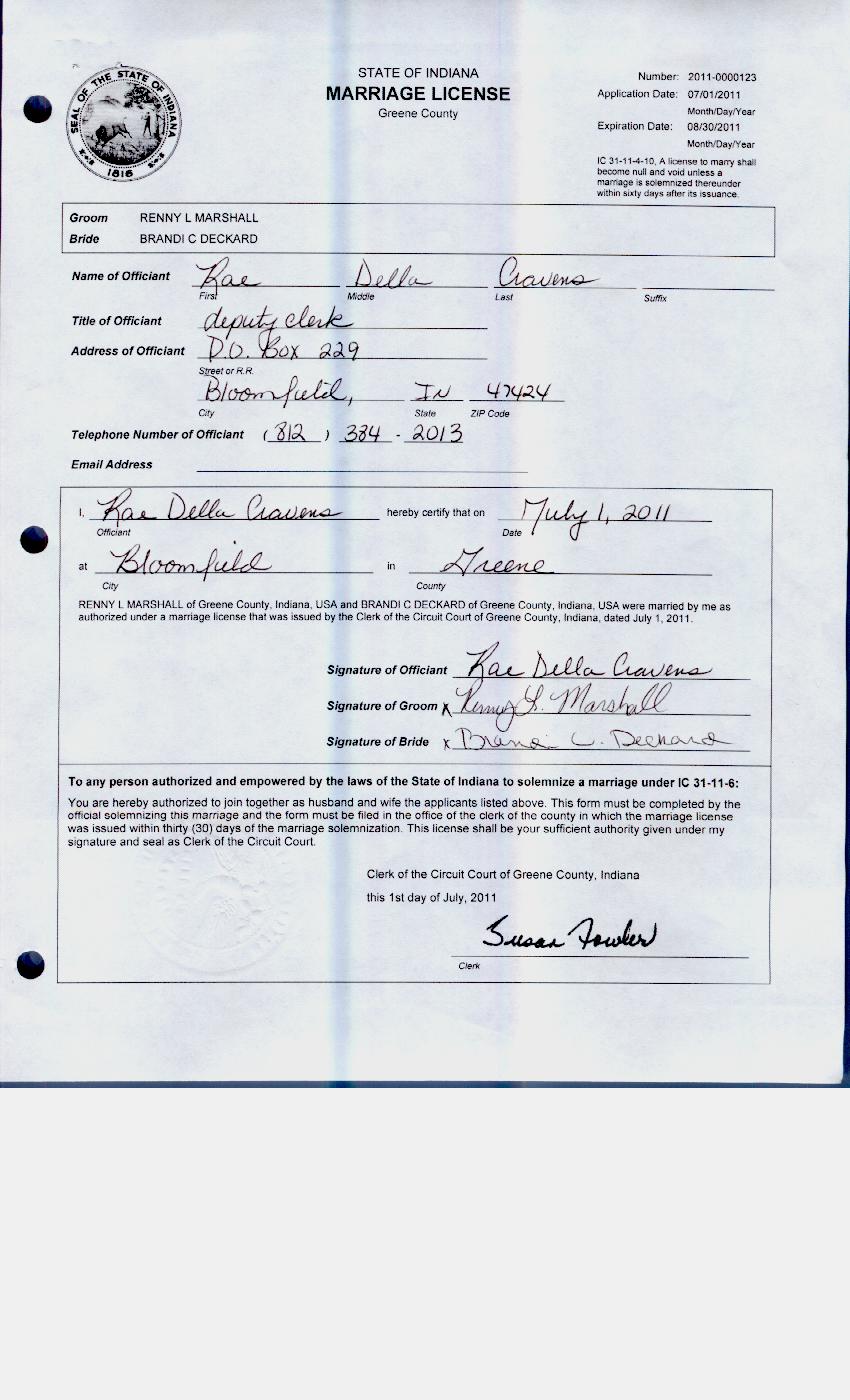 SEAL OF THE STATE OF INDIANA
1816
STATE OF INDIANA
MARRIAGE LICENSE
Greene County
Number: 2011-0000123
Application Date: 07/01/2011
Month/Day/Year
Expiration Date: 08/30/2011
Month/Day/Year
IC 31-11-4-10, A license to marry shall
become null and void unless a
marriage is solemnized thereunder
within sixty days after its issuance.
Groom RENNY L MARSHALL
Bride BRANDI C DECKARD
Name of Officiant Rae Della Cravens
First Middle Last Suffix
Title of Officiant deputy clerk
Address of Officiant P.O. Box 229
Street or R.R.
Bloomfield, IN 47424
City State ZIP Code
Telephone Number of Officiant (812) 384 - 2013
Email Address
I, Rae Della Cravens hereby certify that on July 1, 2011
Officiant Date
at Bloomfield in Greene
City County
RENNY L MARSHALL of Greene County, Indiana, USA and BRANDI C DECKARD of Greene County, Indiana, USA were married by me as
authorized under a marriage license that was issued by the Clerk of the Circuit Court of Greene County, Indiana, dated July 1, 2011.
Signature of Officiant Rae Della Cravens
Signature of Groom x Renny L. Marshall
Signature of Bride x Brandi C. Deckard
To any person authorized and empowered by the laws of the State of Indiana to solemnize a marriage under IC 31-11-6:
You are hereby authorized to join together as husband and wife the applicants listed above. This form must be completed by the
official solemnizing this marriage and the form must be filed in the office of the clerk of the county in which the marriage license
was issued within thirty (30) days of the marriage solemnization. This license shall be your sufficient authority given under my
signature and seal as Clerk of the Circuit Court.
Clerk of the Circuit Court of Greene County, Indiana
this 1st day of July, 2011
Susan Fowler
Clerk